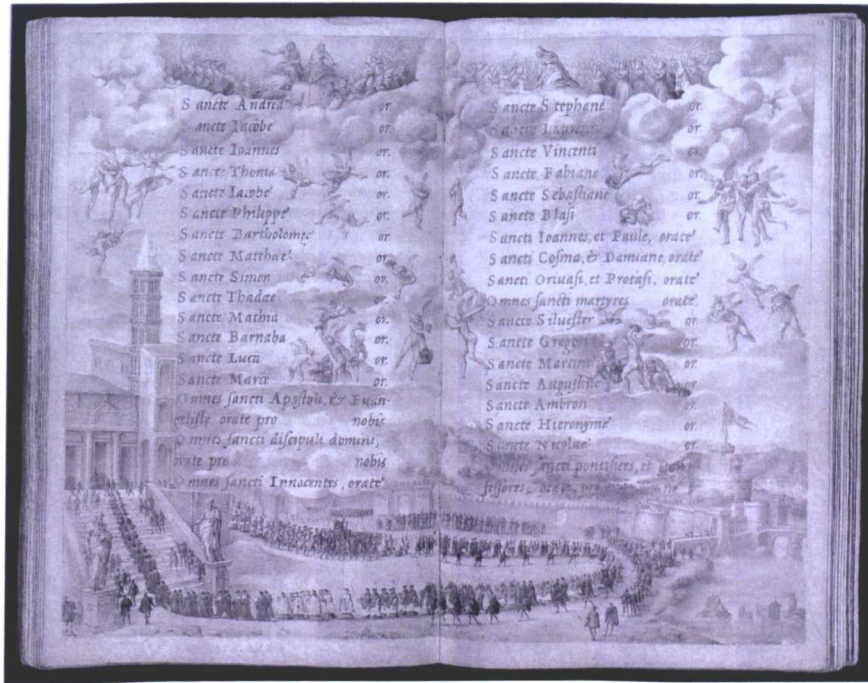 Sancte Andrea or.
Sancte Iacobe or.
Sancte Ioannes or.
Sancte Thoma or.
Sancte Iacobe or.
Sancte Philippe or.
Sancte Bartholomęe or.
Sancte Matthæe or.
Sancte Simon or.
Sancte Thadæe or.
Sancte Mathia or.
Sancte Barnaba or.
Sancte Luca or.
Sancte Marce or.
Omnes sancti Apostoli, & Euan-
geliste orate pro nobis
Omnes sancti discipuli domini,
orate pro nobis
Omnes sancti Innocentes, orate
Sancte Stephane or.
Sancte Laurenti or.
Sancte Vincenti or.
Sancte Fabiane or.
Sancte Sebastiane or.
Sancte Blasi or.
Sancti Ioannes, et Paule, orate
Sancti Cosma, & Damiane, orate
Sancti Geruasi, et Protasi, orate
Omnes sancti martyres orate
Sancte Siluester or.
Sancte Gregori or.
Sancte Martine or.
Sancte Augustine or.
Sancte Ambrosi or.
Sancte Hieronyme or.
Sancte Nicolae or.
Omnes sancti pontifices, et
orate, pro